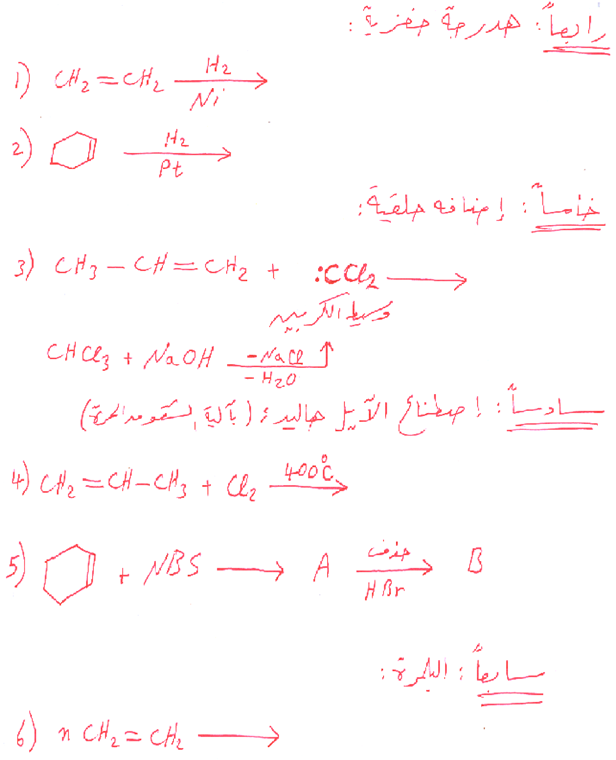 رابعاً: هدرجة حفزية:
1) CH₂=CH₂ —H₂/Ni→
2) —H₂/Pt→
خامساً: إضافه حلقية:
3) CH₃-CH=CH₂ + :CCl₂ →
وسيط الكربين
CHCl₃ + NaOH —-NaCl/-H₂O→
سادساً: اصطناع الآليل هاليد: (بآلية الشقوق الحرة)
4) CH₂=CH-CH₃ + Cl₂ —400°C→
5) + NBS → A —حذف/HBr→ B
سابعاً: البلمرة:
6) n CH₂=CH₂ →